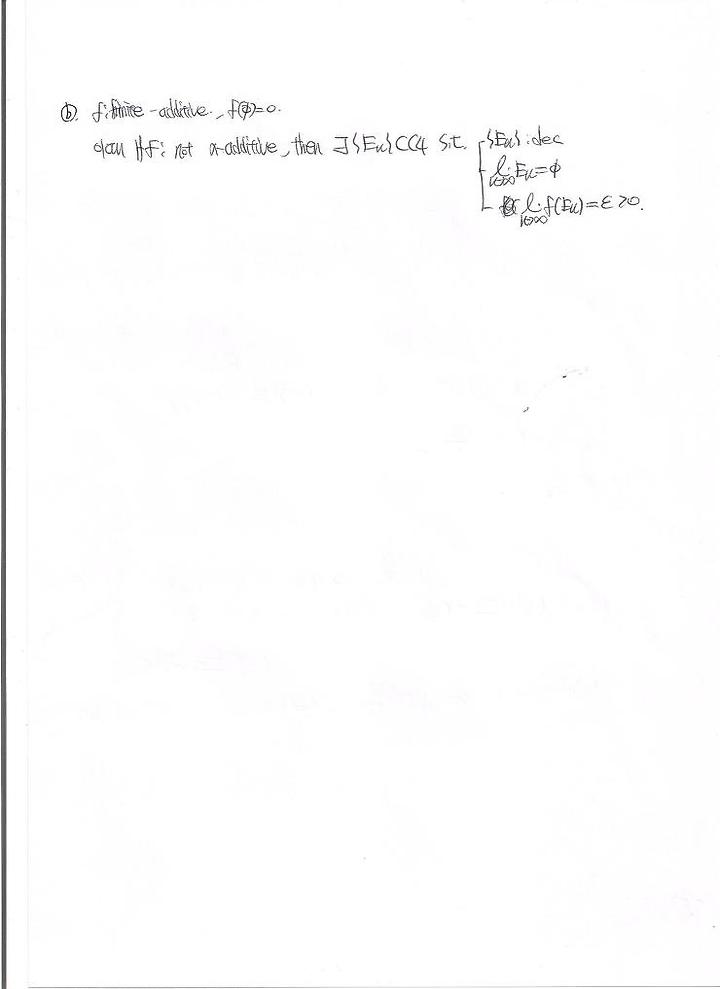 ⓑ. f: finite-additive., f(φ)=0.
claim If f: not σ-additive, then ∃{En}⊂⊂A s.t. {En}: dec
lim n→∞ En=φ
lim n→∞ f(En)=ε>0.